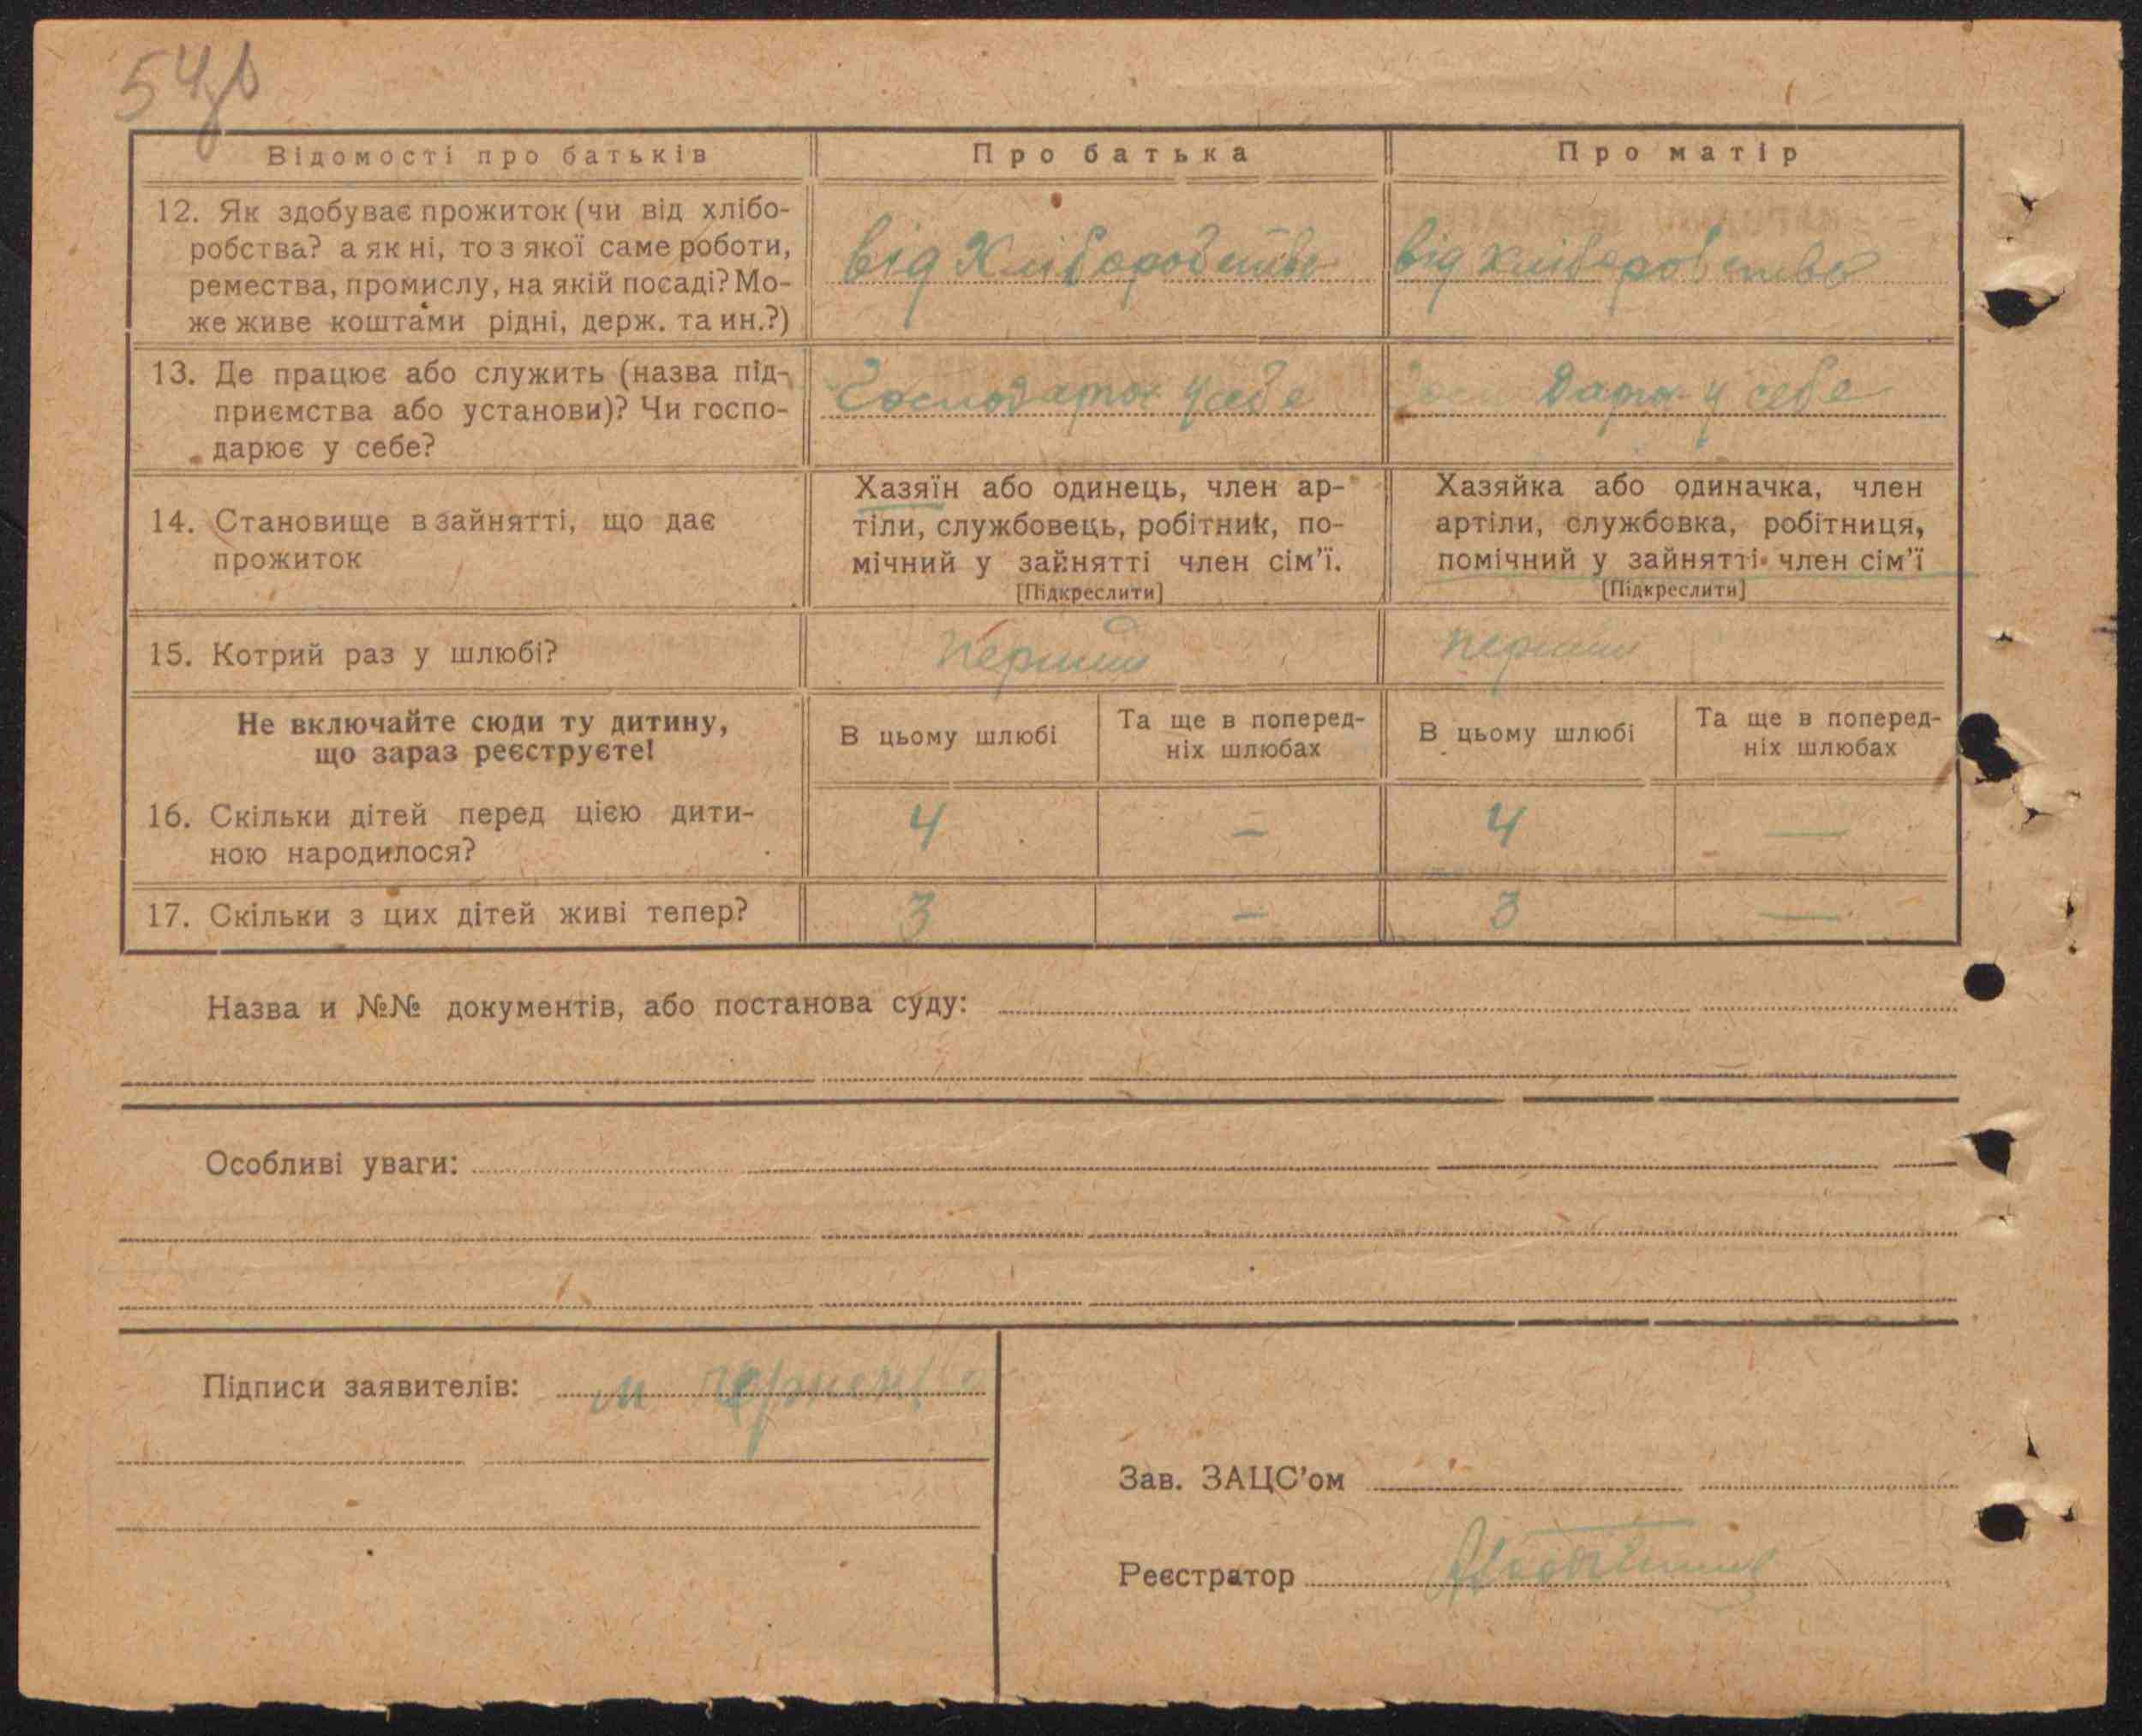 54зв
Відомості про батьків
Про батька
Про матір
12. Як здобуває прожиток (чи від хлібо-
робства? а як ні, то з якої саме роботи,
ремества, промислу, на якій посаді? Мо-
же живе коштами рідні, держ. та ин.?)
від Хліборобства
від хліборобства
13. Де працює або служить (назва під-
приємства або установи)? Чи госпо-
дарює у себе?
у себе
у себе
14. Становище в зайнятті, що дає
прожиток
Хазяїн або одинець, член ар-
тіли, службовець, робітник, по-
мічний у зайнятті член сім'ї.
[Підкреслити]
Хазяйка або одиначка, член
артіли, службовка, робітниця,
помічний у зайнятті член сім'ї
[Підкреслити]
15. Котрий раз у шлюбі?
перший
перший
Не включайте сюди ту дитину,
що зараз реєструєте!
В цьому шлюбі
Та ще в поперед-
ніх шлюбах
В цьому шлюбі
Та ще в поперед-
ніх шлюбах
16. Скільки дітей перед цією дити-
ною народилося?
4
—
4
—
17. Скільки з цих дітей живі тепер?
3
—
3
—
Назва и №№ документів, або постанова суду:
Особливі уваги:
Підписи заявителів:
Зав. ЗАЦС'ом
Реєстратор